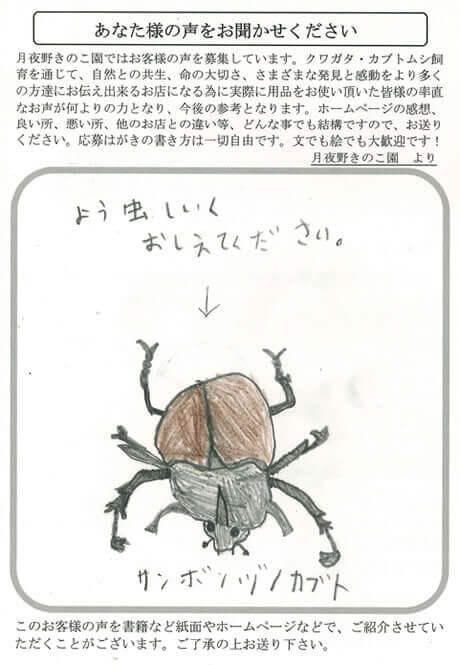 あなた様の声をお聞かせください
月夜野きのこ園ではお客様の声を募集しています。クワガタ・カブトムシ飼
育を通じて、自然との共生、命の大切さ、さまざまな発見と感動をより多く
の方達にお伝え出来るお店になる為に実際に用品をお使い頂いた皆様の率直
なお声が何よりの力となり、今後の参考となります。ホームページの感想、
良い所、悪い所、他のお店との違い等、どんな事でも結構ですので、お送り
ください。応募はがきの書き方は一切自由です。文でも絵でも大歓迎です！
月夜野きのこ園　より
よう虫しいく
おしえてください。
サンボンヅノカブト
このお客様の声を書籍など紙面やホームページなどで、ご紹介させていた
だくことがございます。ご了承の上お送り下さい。